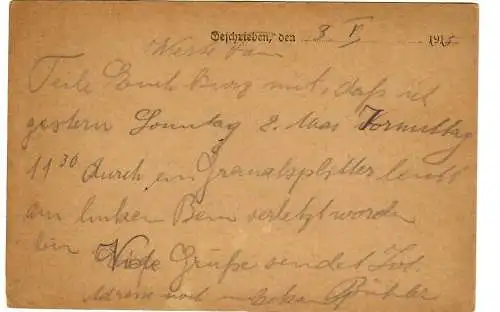 Geschrieben, den 3 V 1915
Werte Fam
Teile Euch kurz mit, daß ich
gestern Sonntag 2. Mai Vormittag
11 30 durch ein Granatsplitter leicht
am linken Bein verletzt worden
bin Viele Grüße sendet
Adresse noch